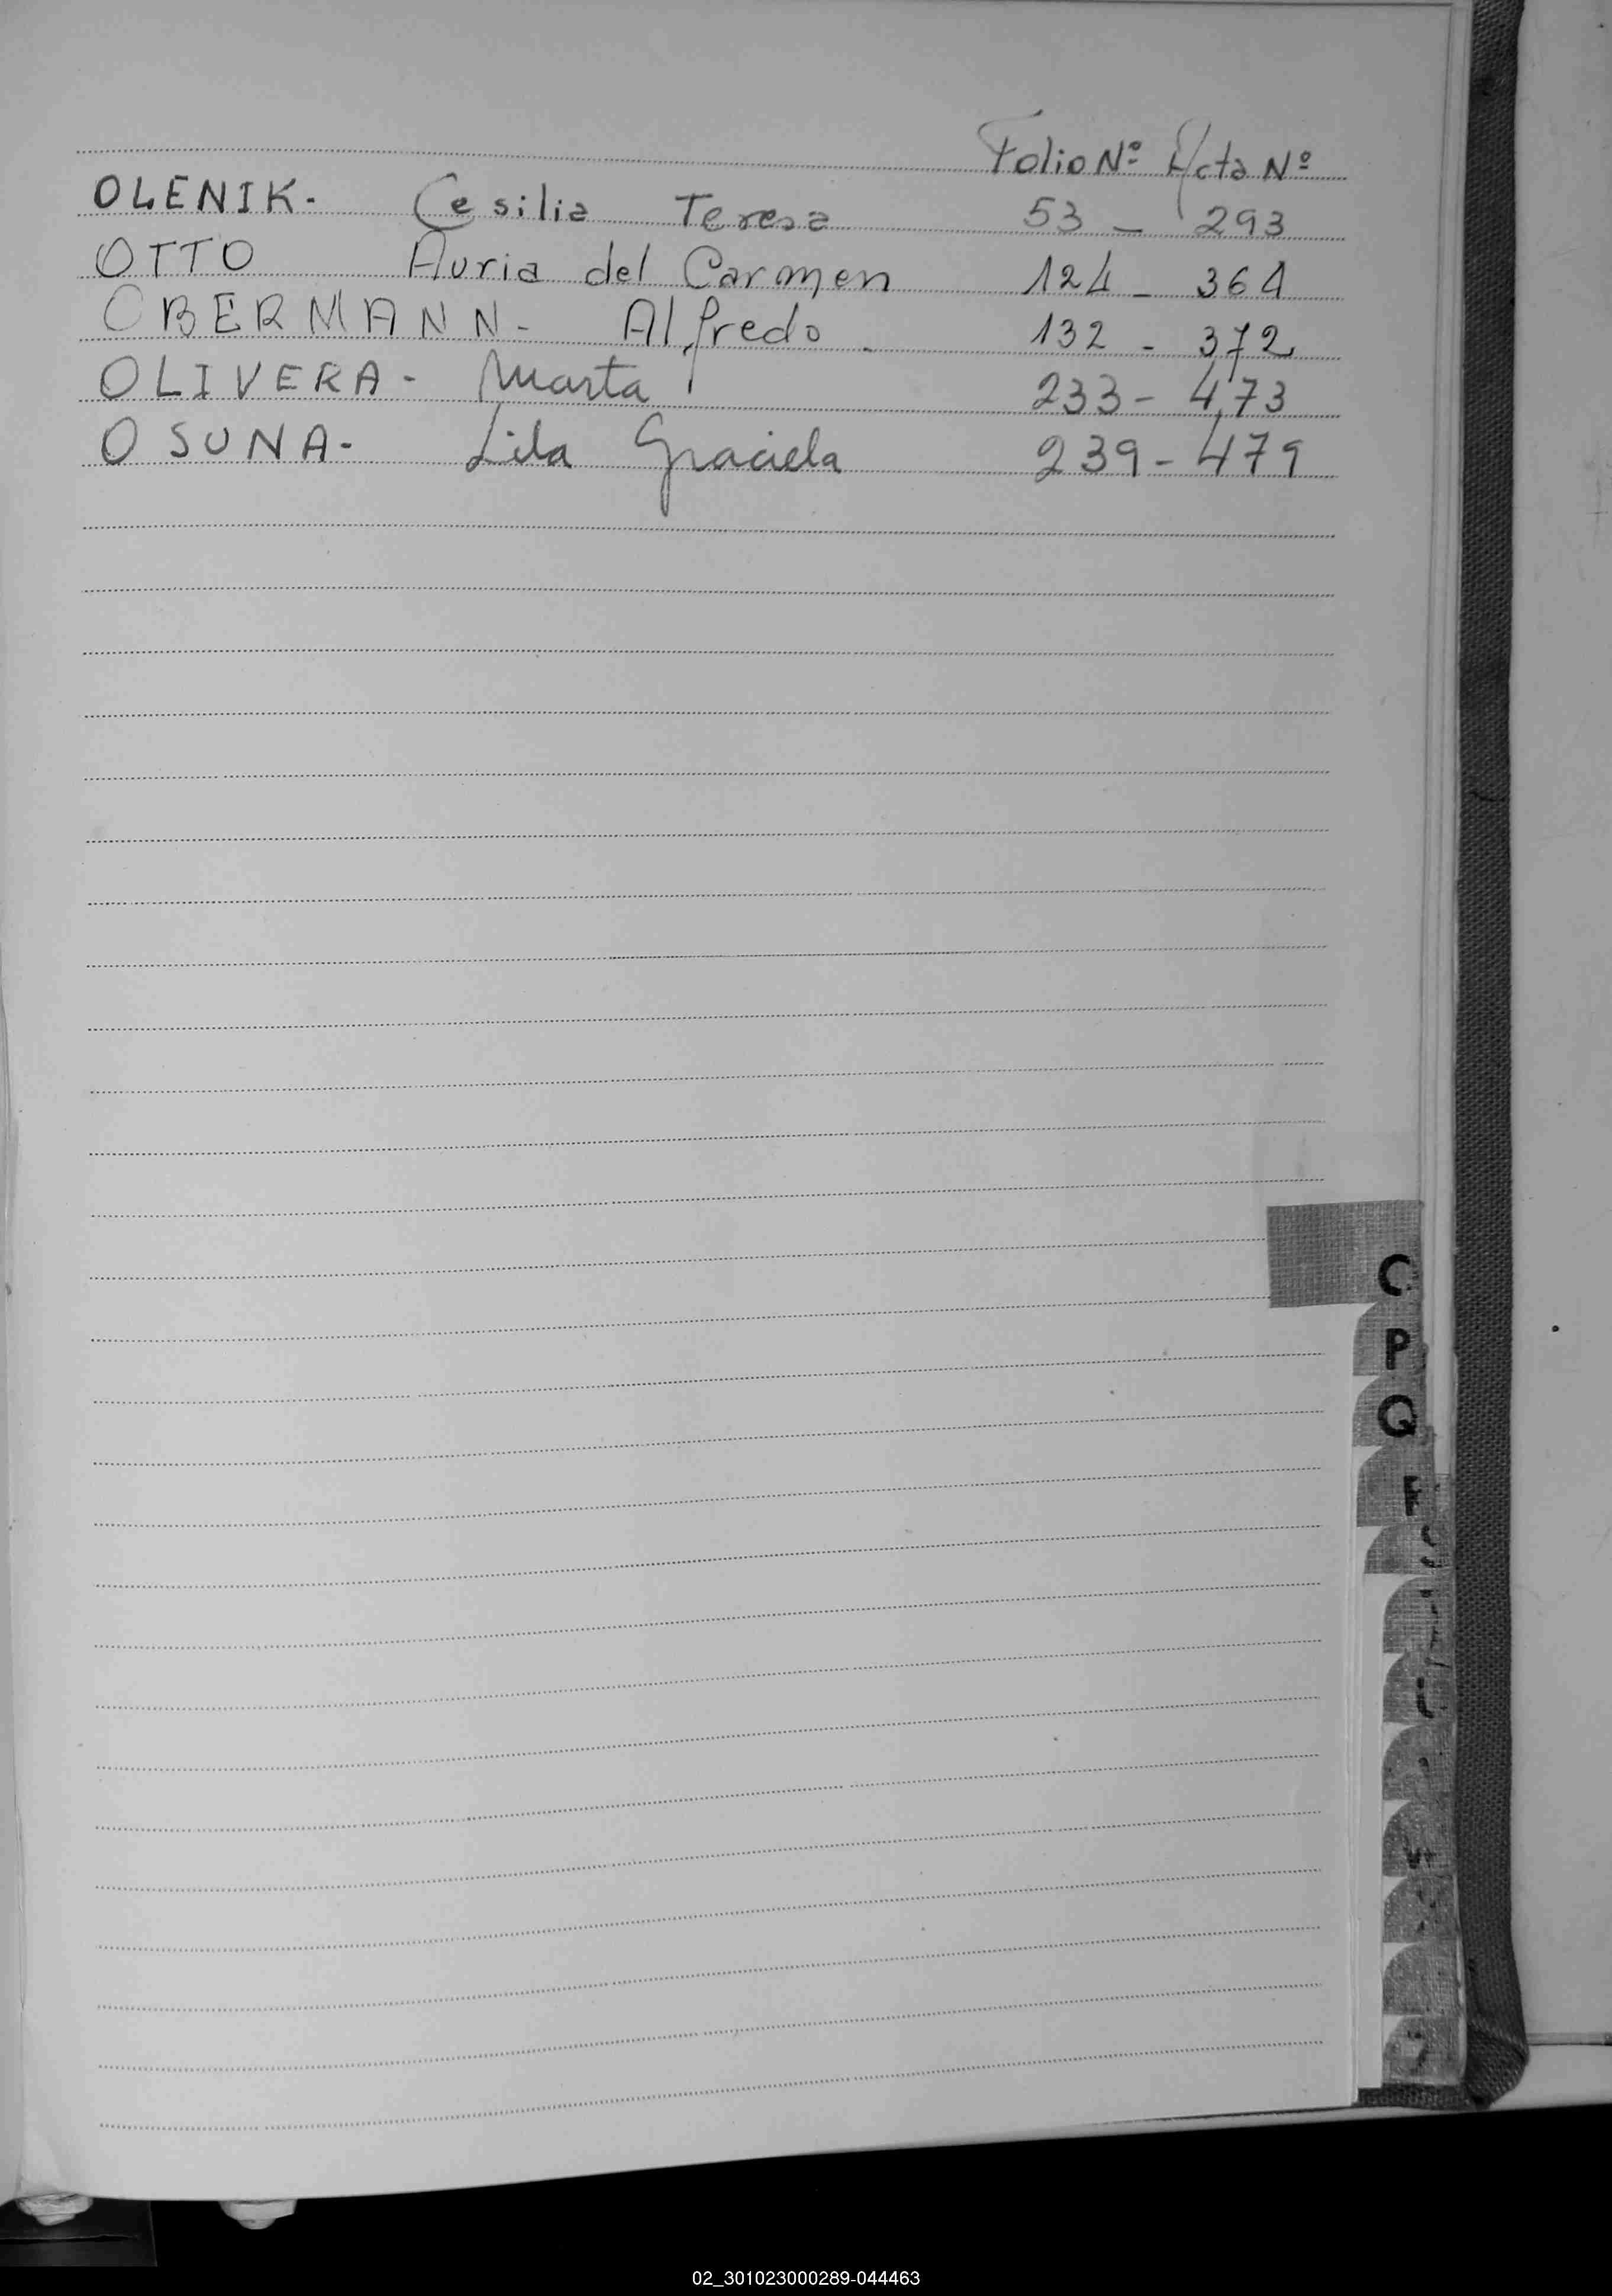 Folio Nº Acta Nº
OLENIK- Cesilia Teresa 53 - 293
OTTO Auria del Carmen 124 - 364
OBERMANN- Alfredo. 132 - 372
OLIVERA- Marta 233 - 473
OSUNA- Lila Graciela 239 - 479
C
P
Q
02_301023000289-044463